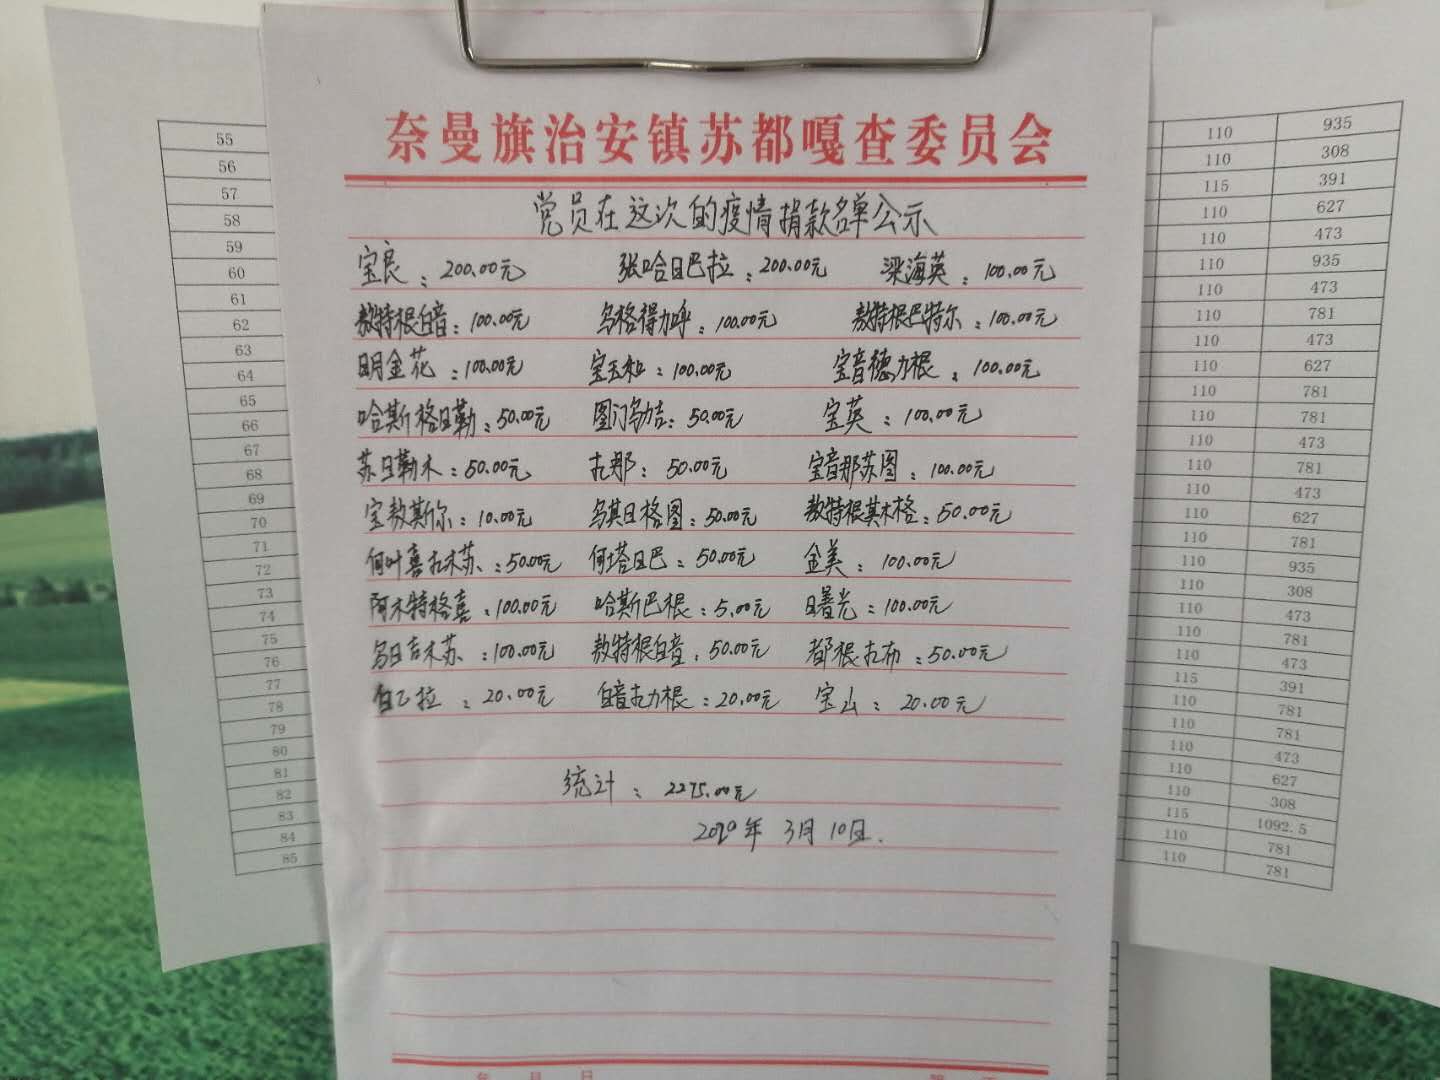 奈曼旗治安镇苏都嘎查委员会
党员在这次的疫情捐款名单公示
宝良：200.00元 张哈日巴拉：200.00元 梁海英：100.00元
敖特根白音：100.00元 乌格得加呼：100.00元 敖特根巴特尔：100.00元
明金花：100.00元 宝玉和：100.00元 宝音德力根：100.00元
哈斯格日勒：50.00元 图门乌力吉：50.00元 宝英：100.00元
苏日勒木：50.00元 古那：50.00元 宝音那苏图：100.00元
宝敖斯尔：10.00元 乌其日格图：50.00元 敖特根其木格：50.00元
何叶喜古木苏：50.00元 何塔日巴：50.00元 金美：100.00元
阿木特格喜：100.00元 哈斯巴根：5.00元 日曙光：100.00元
乌日吉木苏：100.00元 敖特根白音：50.00元 都根扎布：50.00元
白乙拉：20.00元 白音古力根：20.00元 宝山：20.00元
统计：2275.00元
2020年3月10日.
55
56
57
58
59
60
61
62
63
64
65
66
67
68
69
70
71
72
73
74
75
76
77
78
79
80
81
82
83
84
85
110 935
110 308
115 391
110 627
110 473
110 935
110 473
110 781
110 473
110 627
110 781
110 781
110 473
110 781
110 473
110 627
110 781
110 935
110 308
110 473
110 781
110 473
115 391
110 781
110 781
110 473
110 627
110 308
115 1092.5
110 781
110 781